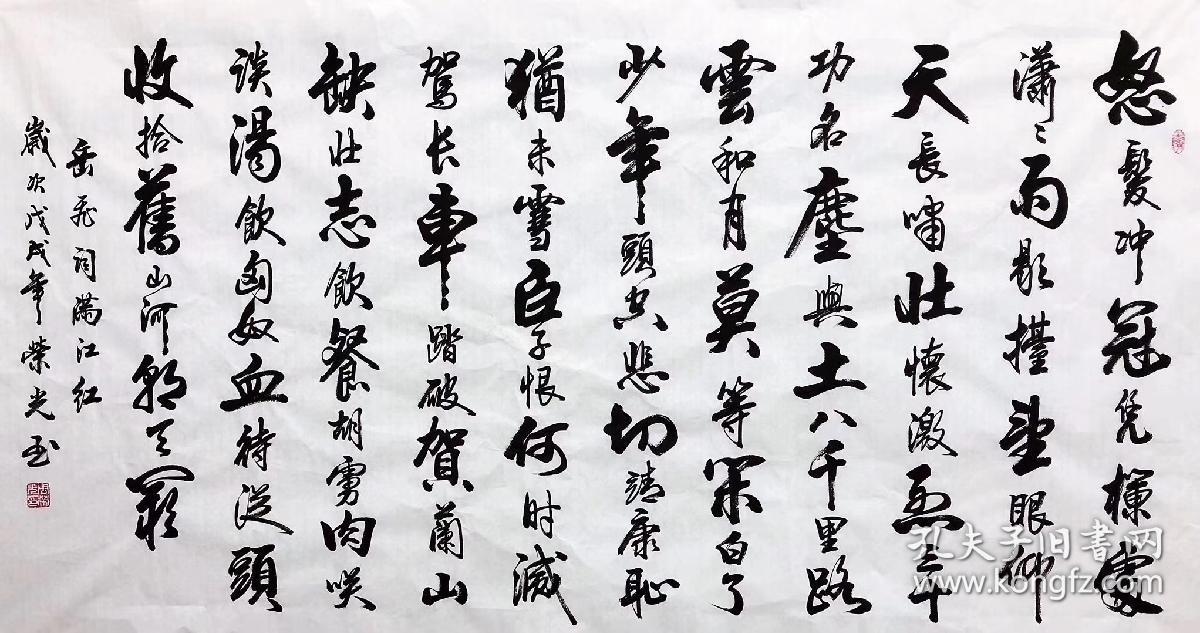 怒髮冲冠凭欄處
瀟々雨歇擡望眼仰
天長嘯壮懷激烈三十
功名塵與土八千里路
雲和月莫等闲白了
少年頭空悲切靖康恥
猶未雪臣子恨何时滅
駕长車踏破賀蘭山
缺壮志飲餐胡虜肉笑
谈渴飲匈奴血待從頭
收拾舊山河朝天闕
岳飛词满江红
歲次戊戌年榮光书
孔夫子旧書网
www.kongfz.com